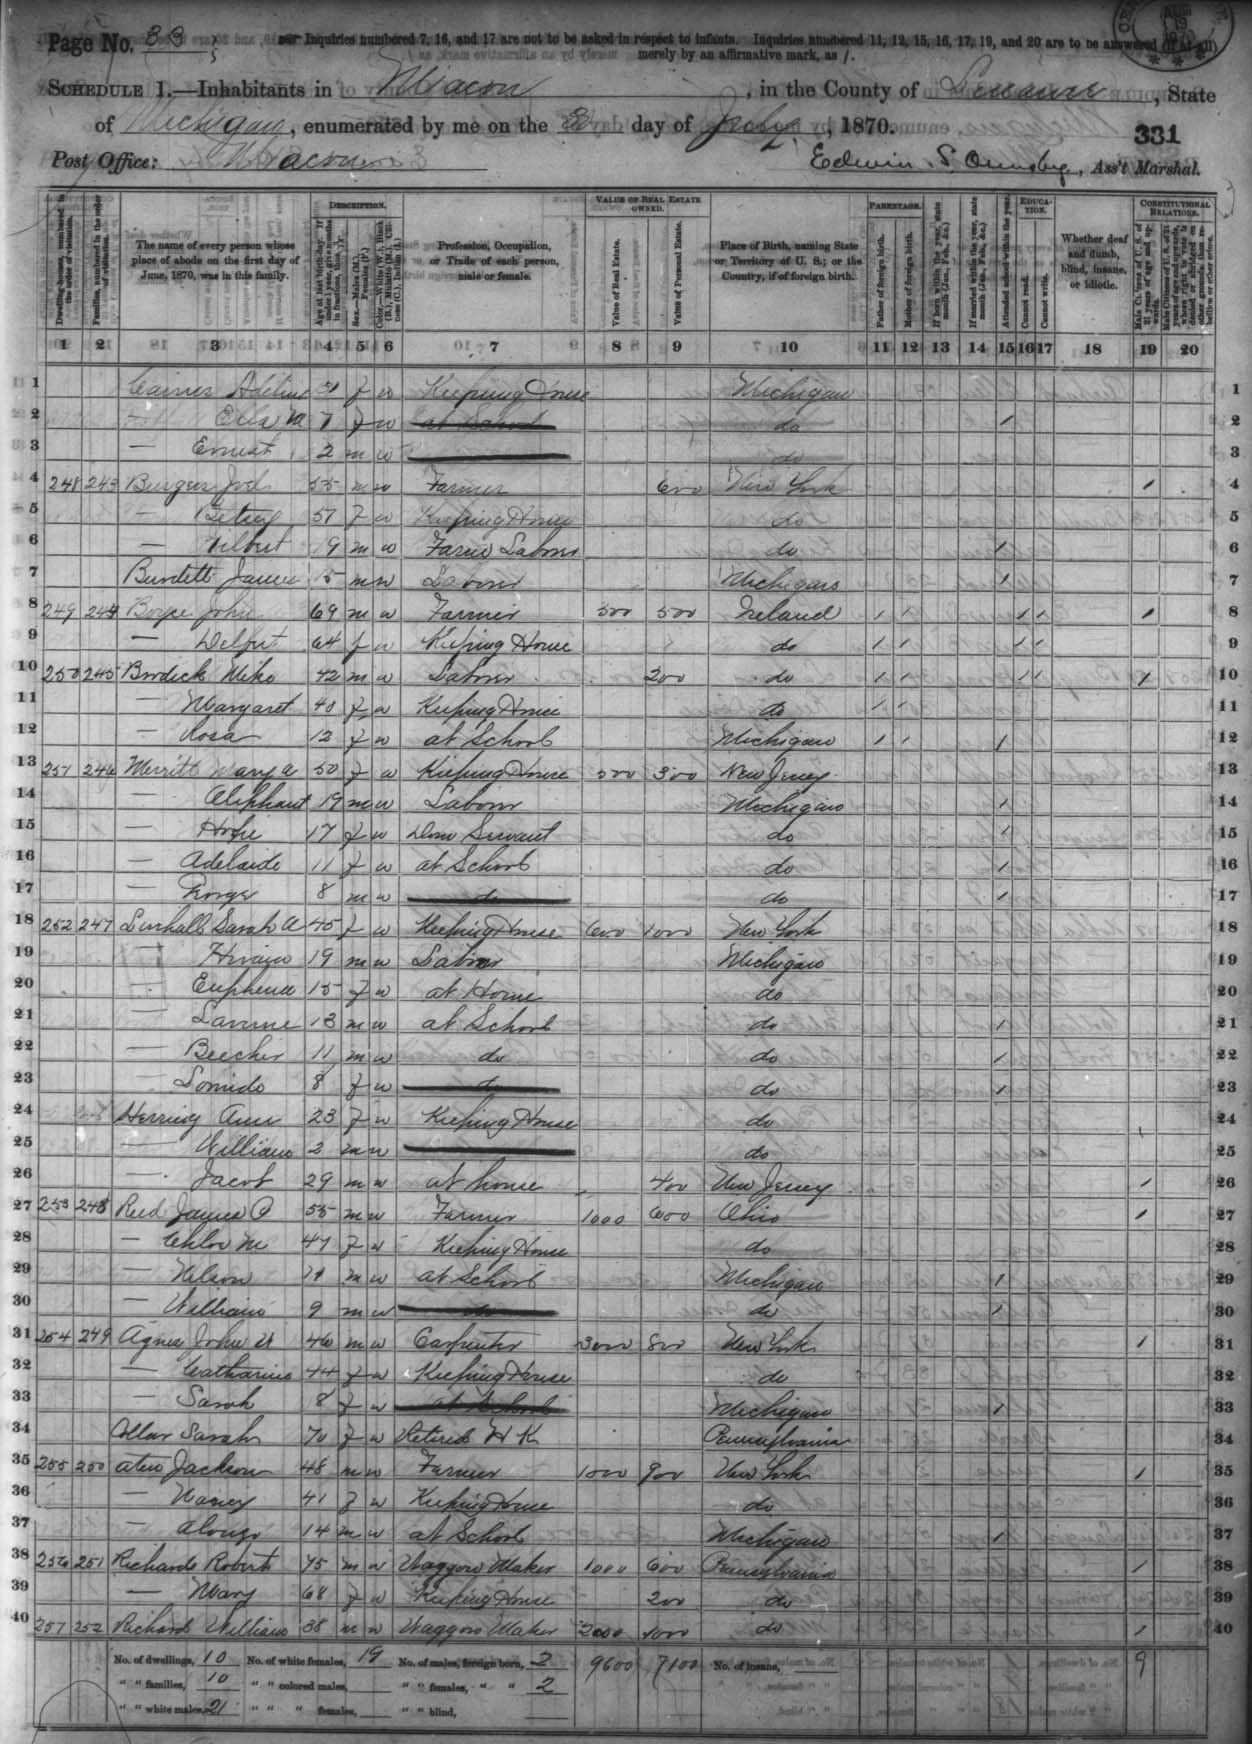 Page No. 33
Inquiries numbered 7, 16, and 17 are not to be asked in respect to infants. Inquiries numbered 11, 12, 15, 16, 17, 19, and 20 are to be answered (if at all)
merely by an affirmative mark, as /.
Schedule 1.—Inhabitants in Macon, in the County of Lenawee, State
of Michigan, enumerated by me on the day of July, 1870.
331
Post Office: Macon
Edwin S. Ormsby, Ass't Marshal.
Description.
Value of Real Estate Owned.
Parentage.
Education.
Constitutional Relations.
Dwelling-houses numbered in the order of visitation.
Families, numbered in the order of visitation.
The name of every person whose place of abode on the first day of June, 1870, was in this family.
Profession, Occupation, or Trade of each person, male or female.
Value of Real Estate.
Value of Personal Estate.
Place of Birth, naming State or Territory of U. S.; or the Country, if of foreign birth.
Father of foreign birth.
Mother of foreign birth.
If born within the year, state month (Jan., Feb., &c.)
If married within the year, state month (Jan., Feb., &c.)
Attended school within the year.
Cannot read.
Cannot write.
Whether deaf and dumb, blind, insane, or idiotic.
1 2 3 4 5 6 7 8 9 10 11 12 13 14 15 16 17 18 19 20
1 Adeline f w Keeping House Michigan 1
2 — Ella M 7 f w at School do / 2
3 — Ernest 2 m w do 3
4 248 243 Joel 55 m w Farmer 600 New York / 4
5 — Betsey 51 f w Keeping House do 5
6 — 19 m w Farm Laborer do / 6
7 Burdett James 15 m w Laborer Michigan / 7
8 249 244 Boyce John 69 m w Farmer 500 500 Ireland / / / / / 8
9 — 64 f w Keeping House do / / / / 9
10 250 245 Burdick Mike 42 m w Laborer 200 do / / / / / 10
11 — Margaret 40 f w Keeping House do / / 11
12 — Rosa 12 f w at School Michigan / / / 12
13 251 246 Merritt Mary A 50 f w Keeping House 500 300 New Jersey 13
14 — Oliphant 19 m w Laborer Michigan / 14
15 — 17 f w Dom Servant do / 15
16 — Adelaide 11 f w at School do / 16
17 — George 8 m w do do / 17
18 252 247 Sarah A 45 f w Keeping House 600 1000 New York 18
19 — Hiram 19 m w Laborer Michigan 19
20 — Euphema 15 f w at Home do 20
21 — Laverne 13 m w at School do / 21
22 — Beecher 11 m w do do / 22
23 — 8 f w do do / 23
24 Herring Ann 23 f w Keeping House do 24
25 — William 2 m w do 25
26 — Jacob 29 m w at home 400 New Jersey / 26
27 253 248 Reed James O 55 m w Farmer 1000 600 Ohio / 27
28 — Chloe M 47 f w Keeping House do 28
29 — Nelson m w at School Michigan / 29
30 — William 9 m w do do / 30
31 254 249 Agnew John 46 m w Carpenter 3000 800 New York / 31
32 — Catharine 44 f w Keeping House do 32
33 — Sarah 8 f w at School Michigan / 33
34 Sarah 70 f w Retired H K Pennsylvania 34
35 255 250 Aten Jackson 48 m w Farmer 1000 900 New York / 35
36 — Nancy 41 f w Keeping House do 36
37 — Alonzo 14 m w at School Michigan / 37
38 256 251 Richards Robert 75 m w Waggon Maker 1000 600 Pennsylvania / 38
39 — Mary 68 f w Keeping House 200 do 39
40 257 252 Richards William 38 m w Waggon Maker 2000 1000 do / 40
No. of dwellings, 10 No. of white females, 19 No. of males, foreign born, 2 9600 7100 No. of insane, 9
" " families, 10 " " colored males, " " females, " " 2
" " white males, 21 " " " females, " " blind,